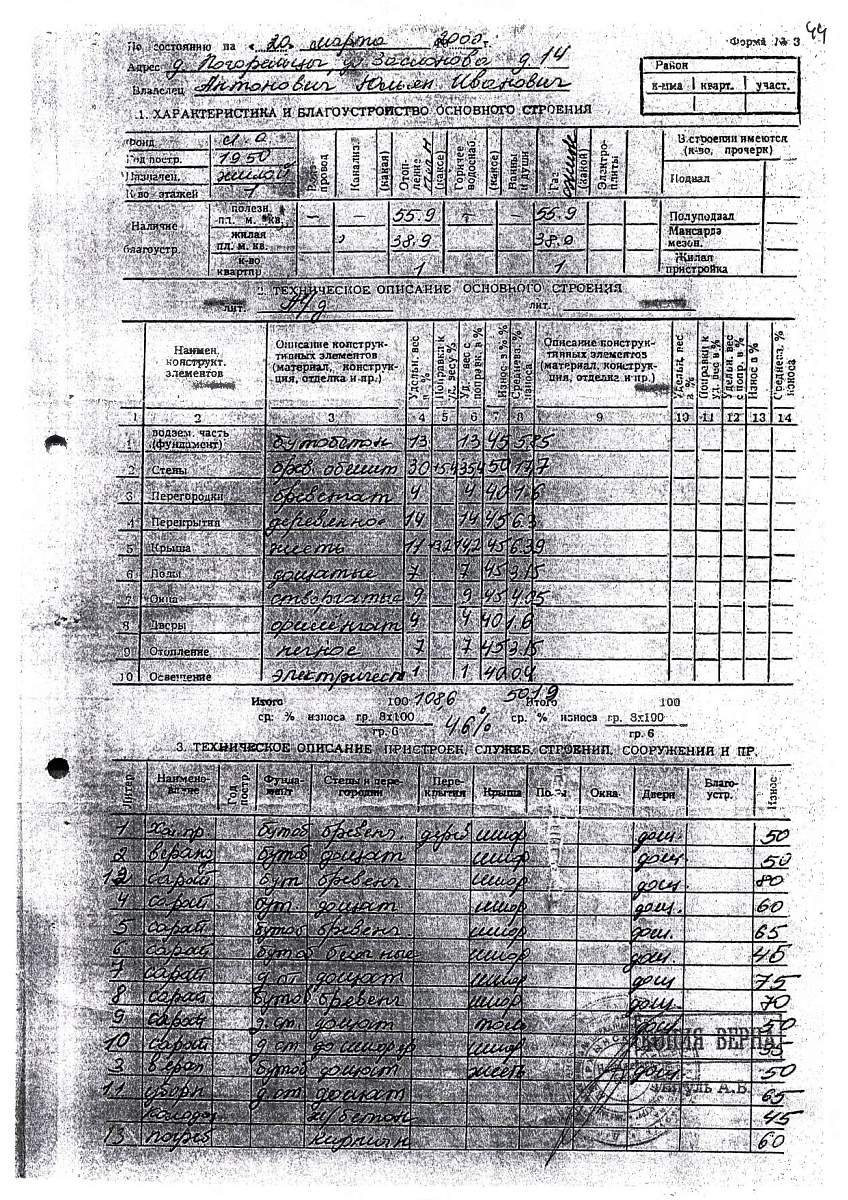 44
По состоянию на « 20 » марта 2000 г. Форма № 3
Адрес д. Погорельцы ул. Заслонова д. 14
Владелец Антонович Юльян Иванович
Район
к-мма кварт. участ.
1. ХАРАКТЕРИСТИКА И БЛАГОУСТРОЙСТВО ОСНОВНОГО СТРОЕНИЯ
Фонд
Год постр. 1950
Назначен. жилой
К-во этажей 1
Водопровод
Канализ. (какая)
Отопление (какое)
Горячее водоснаб. (какое)
Ванны и души
Газ (какой)
Электроплиты
В строении имеются
(к-во, прочерк)
Подвал
Наличие благоустр.
полезн. пл. м. кв. — — 55.9 — — 55.9 Полуподвал
жилая пл. м. кв. 38.9 38.9 Мансарда мезон.
к-во квартир 1 1 Жилая пристройка
2. ТЕХНИЧЕСКОЕ ОПИСАНИЕ ОСНОВНОГО СТРОЕНИЯ
лит. лит.
Наимен. конструкт. элементов
Описание конструктивных элементов (материал, конструкция, отделка и пр.)
Удельн. вес в %
Поправки к уд. весу %
Уд. вес с поправк. в %
Износ в %
Средневз. % износа
Описание конструктивных элементов (материал, конструкция, отделка и пр.)
Удельн. вес в %
Поправки к уд. вес в %
Удельн. вес с попр. в %
Износ в %
Среднев. % износа
1 2 3 4 5 6 7 8 9 10 11 12 13 14
1 подзем. часть (фундамент) бутобетон 13 13 45 5.85
2 Стены брев. обшит 30 +5.4 35.4 50 17.7
3 Перегородки бревенчат 4 4 40 1.6
4 Перекрытия деревянное 14 14 45 6.3
5 Крыша жесть 11 +3.2 14.2 45 6.39
6 Полы дощатые 7 7 45 3.15
7 Окна створчатые 9 9 45 4.05
8 Двери филенчат 4 4 40 1.6
9 Отопление печное 7 7 45 3.15
10 Освещение электричест 1 1 40 0.4
Итого 100 108.6 50.19 Итого 100
ср. % износа гр. 8х100 46% ср. % износа гр. 8х100
гр. 6 гр. 6
3. ТЕХНИЧЕСКОЕ ОПИСАНИЕ ПРИСТРОЕК, СЛУЖЕБ, СТРОЕНИЙ, СООРУЖЕНИЙ И ПР.
Литер. Наименование Год постр. Фундамент Стены и перегородки Перекрытия Крыша Полы Окна Двери Благоустр. Износ
1 хол. пр бутоб бревенч. дерев шифр дощ. 50
2 веранд бутоб дощат шифр дощ 50
сарай бут бревенч шифр дощ. 80
4 сарай дощат шифр дощ. 60
5 сарай бутоб бревенч. шифр дощ. 65
6 сарай бутоб шифр дощ. 45
7 сарай д.ст. дощат шифр дощ 75
8 сарай бутоб бревенч шифр дощ. 70
9 сарай д.ст. дощат толь дощ. 50
10 сарай д.ст шифр
3 веран бутоб дощат жесть дощ 50
11 уборн д.ст дощат 65
колодец ж/бетон 45
13 погреб кирпичн 60
КОПИЯ ВЕРНА